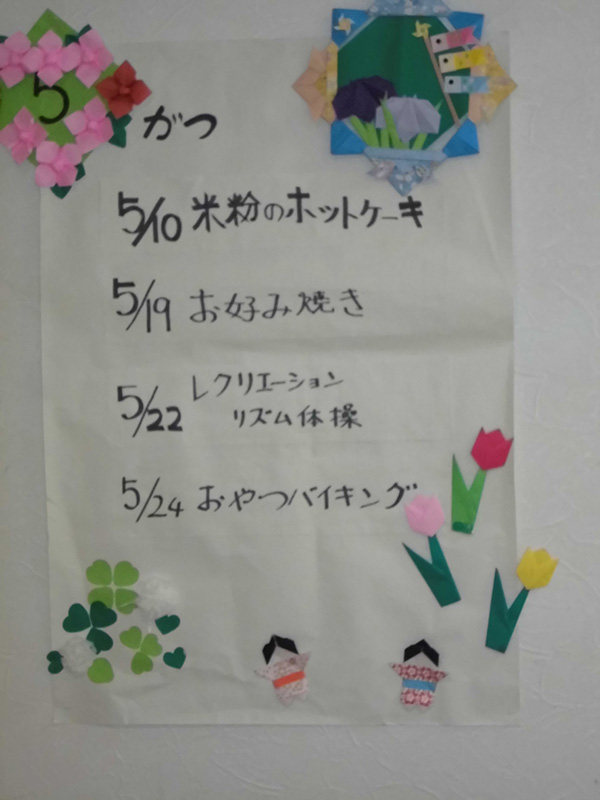 5 がつ
5/10 米粉のホットケーキ
5/19 お好み焼き
5/22 レクリエーション
リズム体操
5/24 おやつバイキング